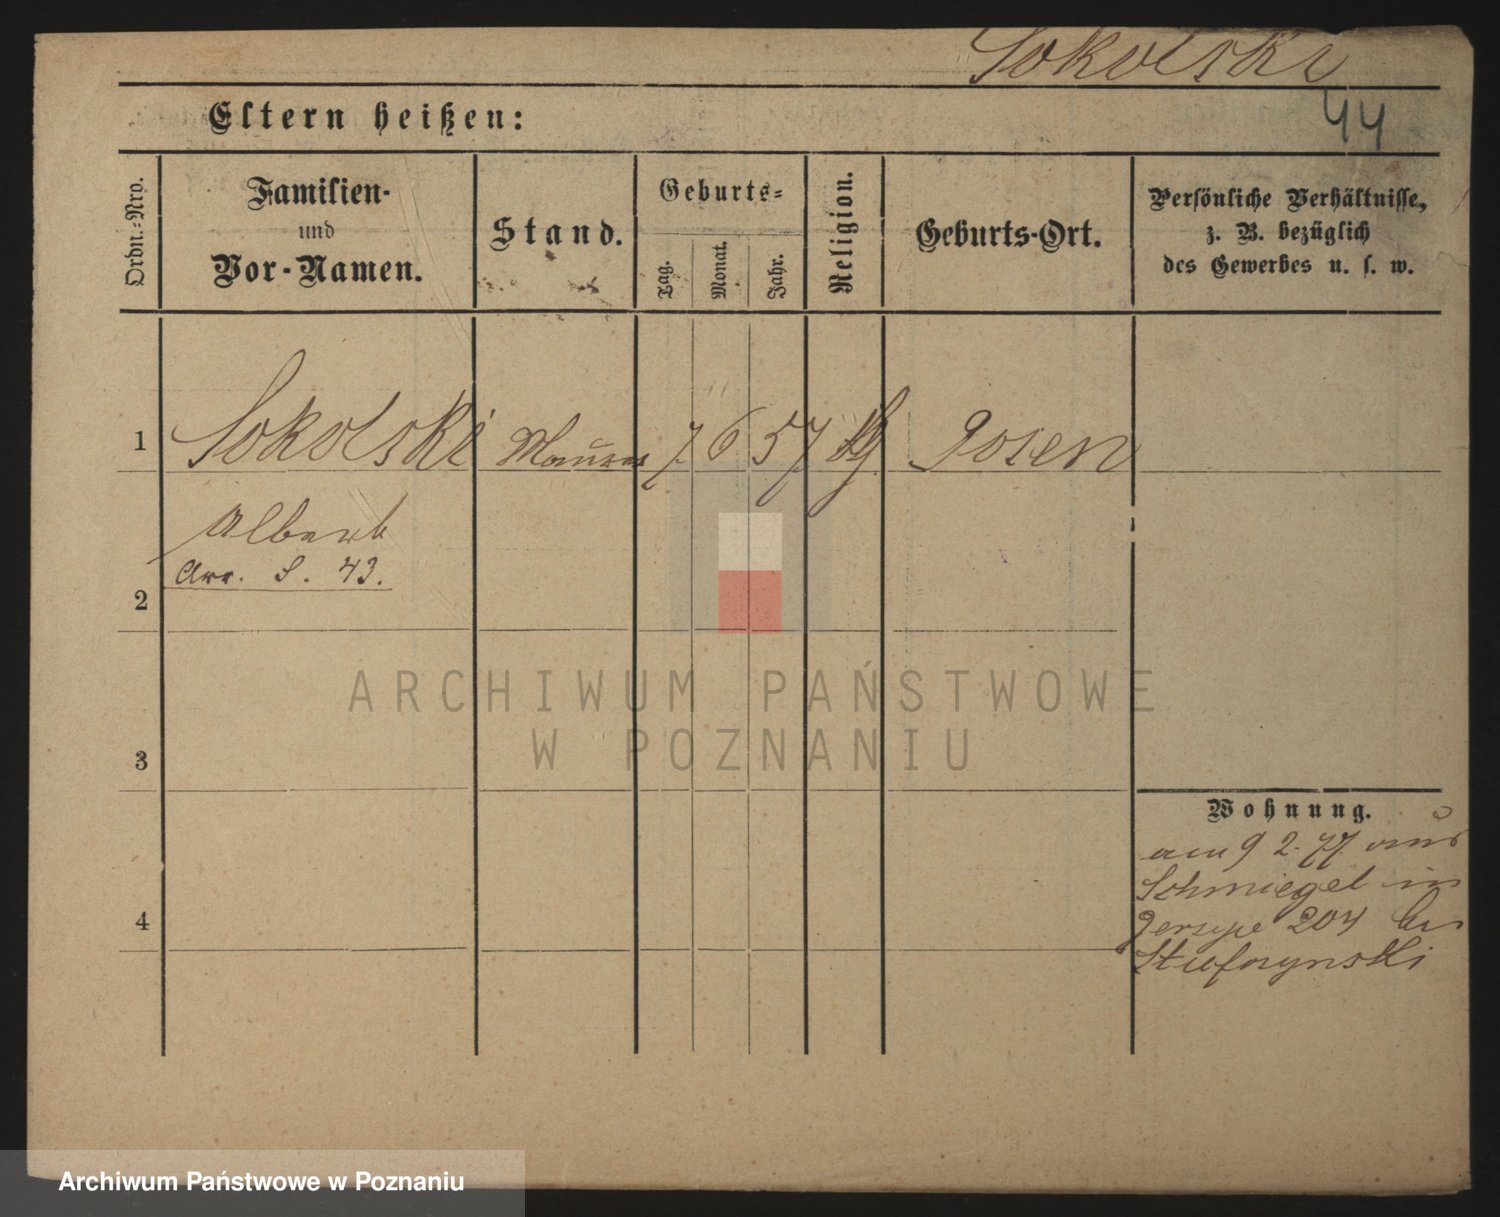 Sokolski
44
Eltern heißen:
Ordn.-Nro.
Familien-
und
Vor-Namen.
Stand.
Geburts-
Tag.
Monat.
Jahr.
Religion.
Geburts-Ort.
Persönliche Verhältnisse,
z. B. bezüglich
des Gewerbes u. s. w.
1
Sokolski
Maurer
7
6
57
Posen
Albert
Arr. S. 43.
2
ARCHIWUM PAŃSTWOWE
W POZNANIU
3
Wohnung.
am 9 2. 77. aus
Schmiegel in
Jersyce 204 bei
4
Archiwum Państwowe w Poznaniu